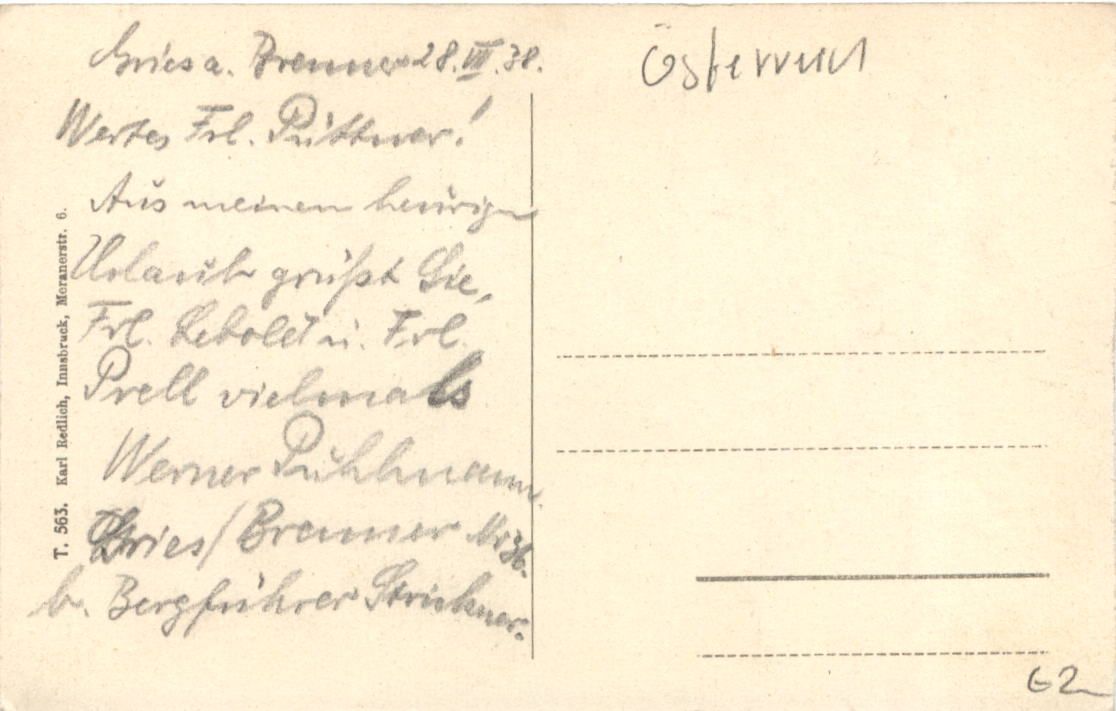 Gries a. Brenner 28.VII.38.
Wertes Frl. Püttner!
Aus meinen heurigen
Urlaub grüßt Sie,
Frl. Lebold u. Frl.
Prell vielmals
Werner Pühlmann
Gries/Brenner Nr 36.
b. Bergführer Strickner.
T. 563. Karl Redlich, Innsbruck, Meranerstr. 6.
Österreich